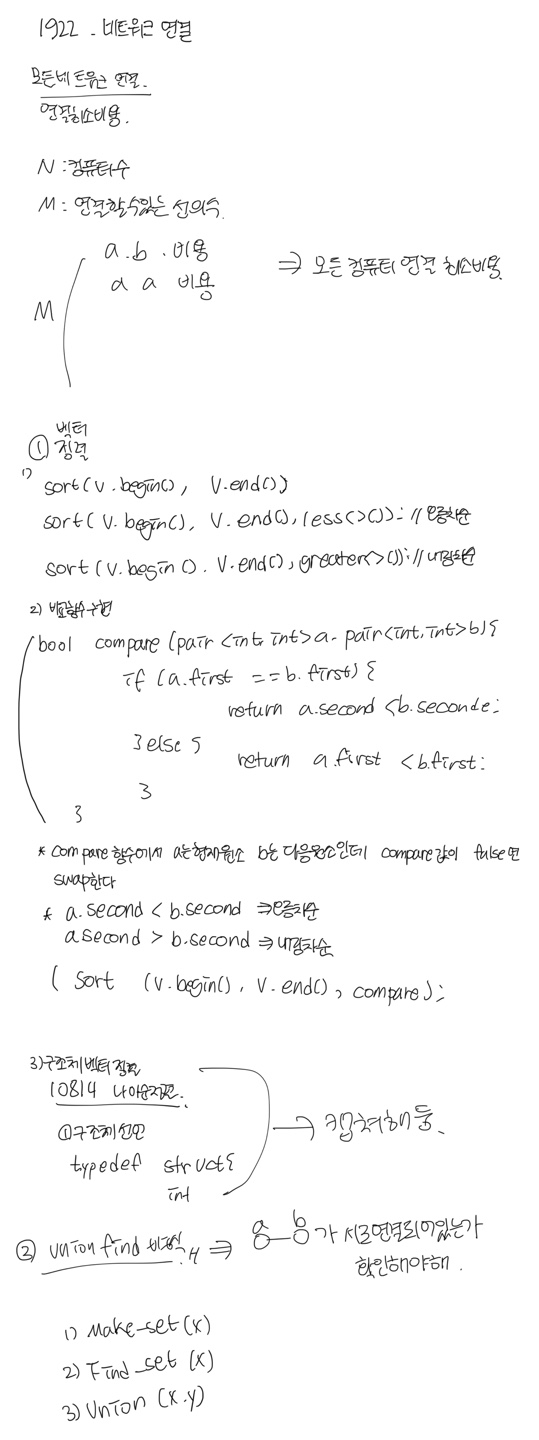 1922 - 네트워크 연결
모든네트워크 연결.
연결최소비용.
N : 컴퓨터수
M : 연결할수있는 선의수.
a . b . 비용
a a 비용
M
⇒ 모든 컴퓨터 연결 최소비용.
벡터
① 정렬
1)
sort(v.begin(), v.end())
sort( v.begin(), v.end(), less<>()); // 오름차순
sort (v.begin(). v.end(), greater<>()); // 내림차순
2) 비교함수구현
bool compare (pair<int, int>a. pair<int, int>b){
if (a.first == b.first) {
return a.second < b.seconde;
}else {
return a.first < b.first;
}
}
* compare 함수에서 a는현재원소 b는 다음원소인데 compare값이 false면
swap한다
* a.second < b.second ⇒오름차순
a second > b.second ⇒ 내림차순
( sort (v.begin(), v.end(), compare);
3)구조체벡터정렬
10814 나이순정렬.
①구조체선언
typedef struct{
int
→ 캡쳐해둠.
② union find
⇒ a b 가 서로연결되어있는가
확인해야해.
1) Make-set(x)
2) Find_set (x)
3) Union (x.y)